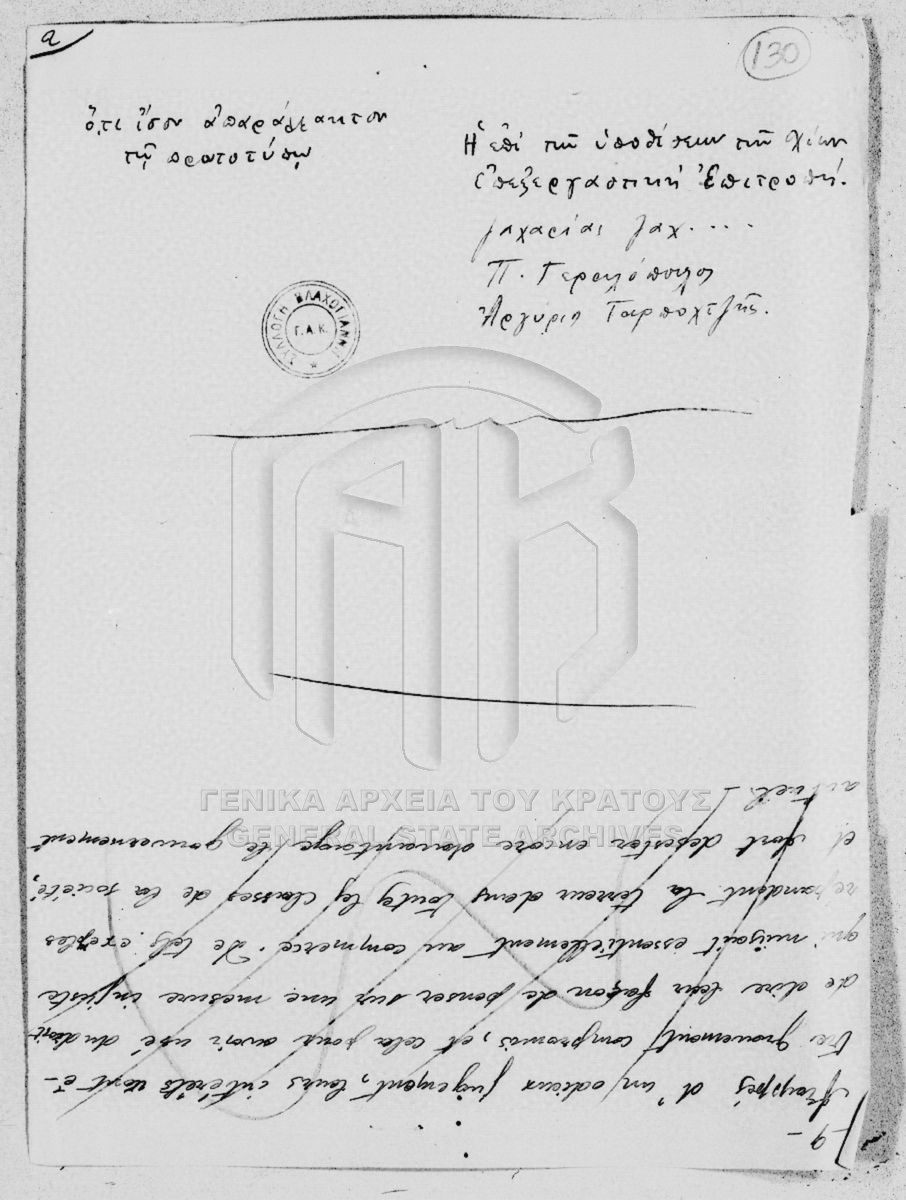 a
130
ὅτι ἴσον ἀπαράλλακτον
τῷ πρωτοτύπῳ
Ἡ ἐπὶ τῶν ὑποθέσεων τῆς Χίου
Ἐπεξεργαστικὴ Ἐπιτροπή.
Ζαχαρίας Ζαχ....
Π. Γερα
Ἀργύρης Ταρποχτζῆς.
ΣΥΛΛΟΓΗ ΒΛΑΧΟΓΙΑΝΝΗ
Γ.Α.Κ.
ΓΕΝΙΚΑ ΑΡΧΕΙΑ ΤΟΥ ΚΡΑΤΟΥΣ
GENERAL STATE ARCHIVES
9-
frappés d'un odieux jugement, leurs intérêts vont ê-
tre gravement compromis, et cela pour avoir usé du droit
de dire leur façon de penser sur une mesure injuste
qui nuisait essentiellement au commerce. De tels exeples
repandent la terreur dans toutes les classes de la société,
et font detester encore davantage le gouvernement
actuel.